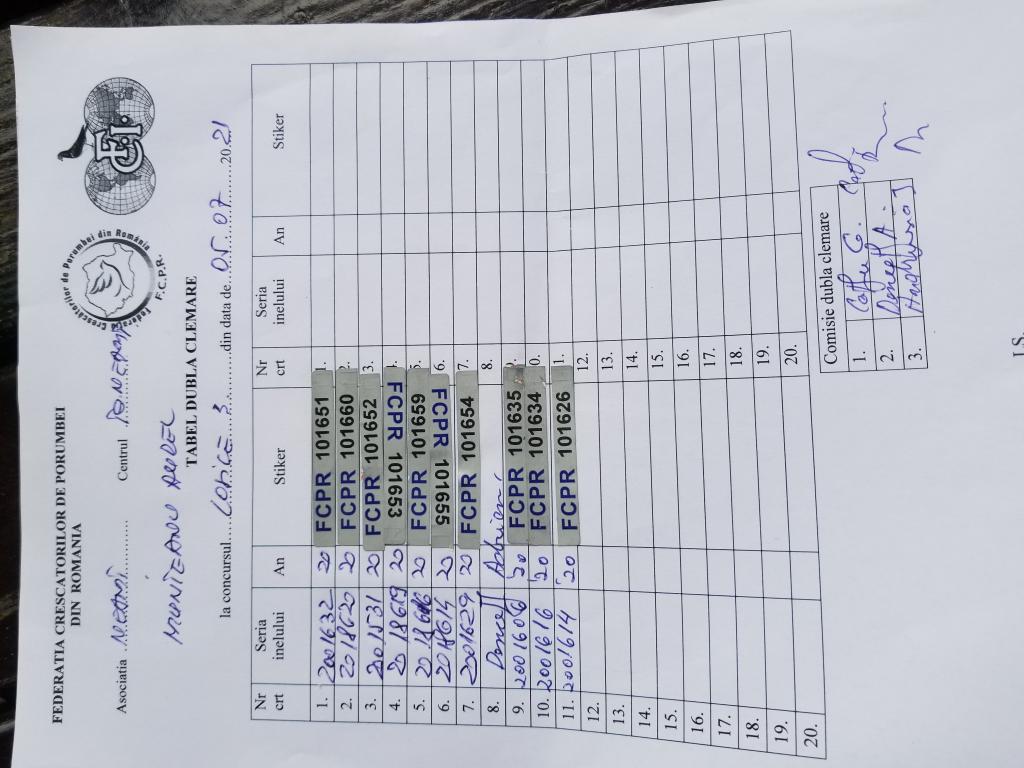 FEDERATIA CRESCATORILOR DE PORUMBEI
DIN ROMANIA
Federatia Crescatorilor de Porumbei din România
F.C.P.R.
FCI
Asociatia Centrul
MUNTEANU
TABEL DUBLA CLEMARE
la concursul....LOPICE 3.........din data de..05..07........20.21
Nr crt Seria inelului An Stiker Nr crt Seria inelului An Stiker
1. 2001632 20 FCPR 101651 1.
2. 2018620 20 FCPR 101660 2.
3. 2001531 20 FCPR 101652 3.
4. 2018619 20 FCPR 101653 4.
5. 20 FCPR 101659 5.
6. 20 FCPR 101655 6.
7. 2001629 20 FCPR 101654 7.
8. Donceff Adrian 8.
9. 2001606 '20 FCPR 101635 9.
10. 2001616 '20 FCPR 101634 10.
11. 2001614 '20 FCPR 101626 11.
12. 12.
13. 13.
14. 14.
15. 15.
16. 16.
17. 17.
18. 18.
19. 19.
20. 20.
Comisie dubla clemare
1.
2. Donceff A.
3.